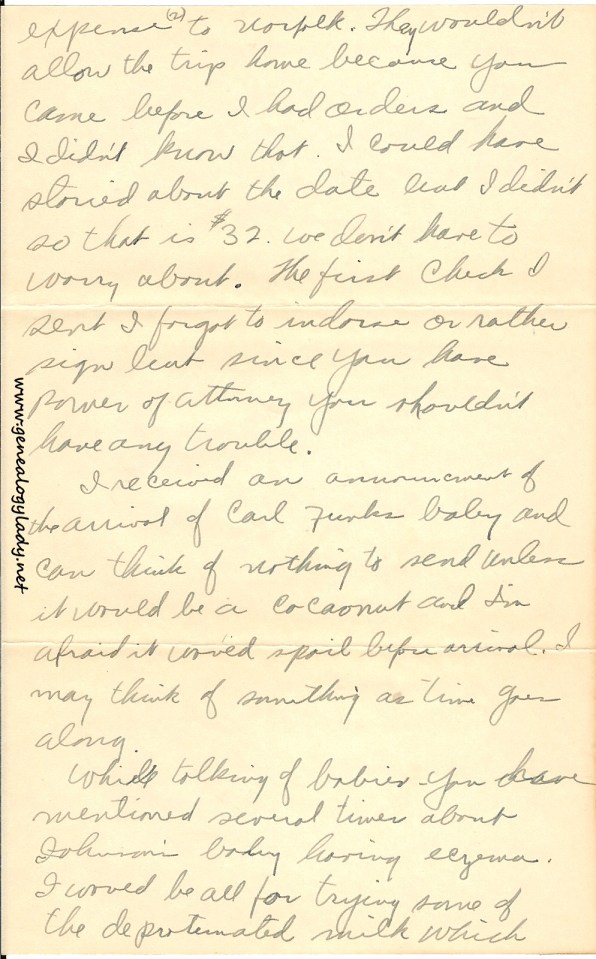 (2)
expense to Norfolk. They wouldn't
allow the trip home because you
came before I had orders and
I didn't know that. I could have
storied about the date but I didn't
so that is $32. we don't have to
worry about. The first check I
sent I forgot to indorse or rather
sign but since you have
Power of Attorney you shouldn't
have any trouble.
I received an announcment of
the arrival of Carl Funks baby and
can think of nothing to send unless
it would be a cocoanut and I'm
afraid it would spoil before arrival. I
may think of something as time goes
along.
While talking of babies you have
mentioned several times about
Johnson's baby having eczema.
I would be all for trying some of
the deprotinated milk which
www.genealogylady.net